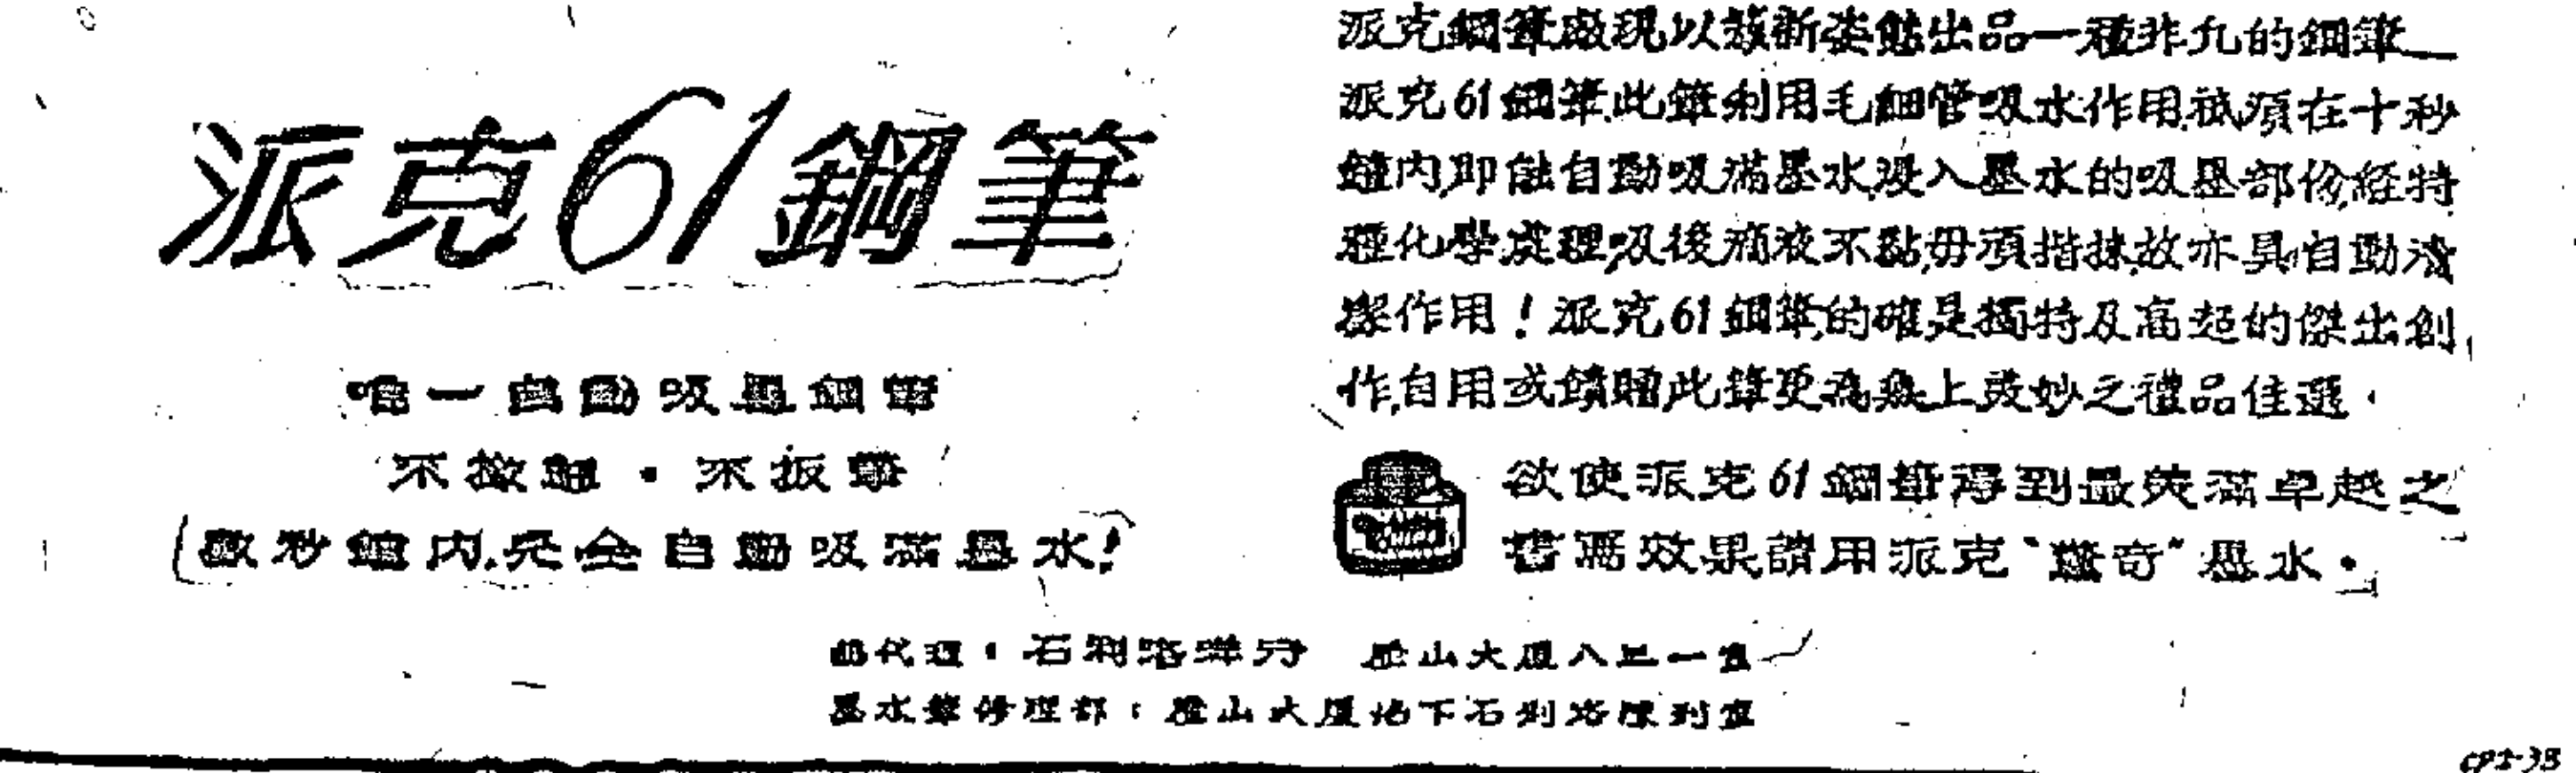 派克61鋼筆
唯一自動吸墨鋼筆
不撳鈕·不扳擎
數秒鐘內，完全自動吸滿墨水！
派克鋼筆廠現以嶄新姿態出品一種非凡的鋼筆——
派克61鋼筆，此筆利用毛細管吸水作用，祇須在十秒
鐘內，即能自動吸滿墨水，浸入墨水的吸墨部份，經特
種化學處理，吸後滴液不黏，毋須揩抹，故亦具自動清
潔作用！派克61鋼筆，的確是獨特及高超的傑出創
作，自用或饋贈，此筆更為無上美妙之禮品佳選·
欲使派克61鋼筆得到最美滿卓越之
書寫效果請用派克“驚奇”墨水·
總代理：石利洛洋行 歷山大廈八三一室
墨水筆修理部：歷山大廈地下石利洛陳列室